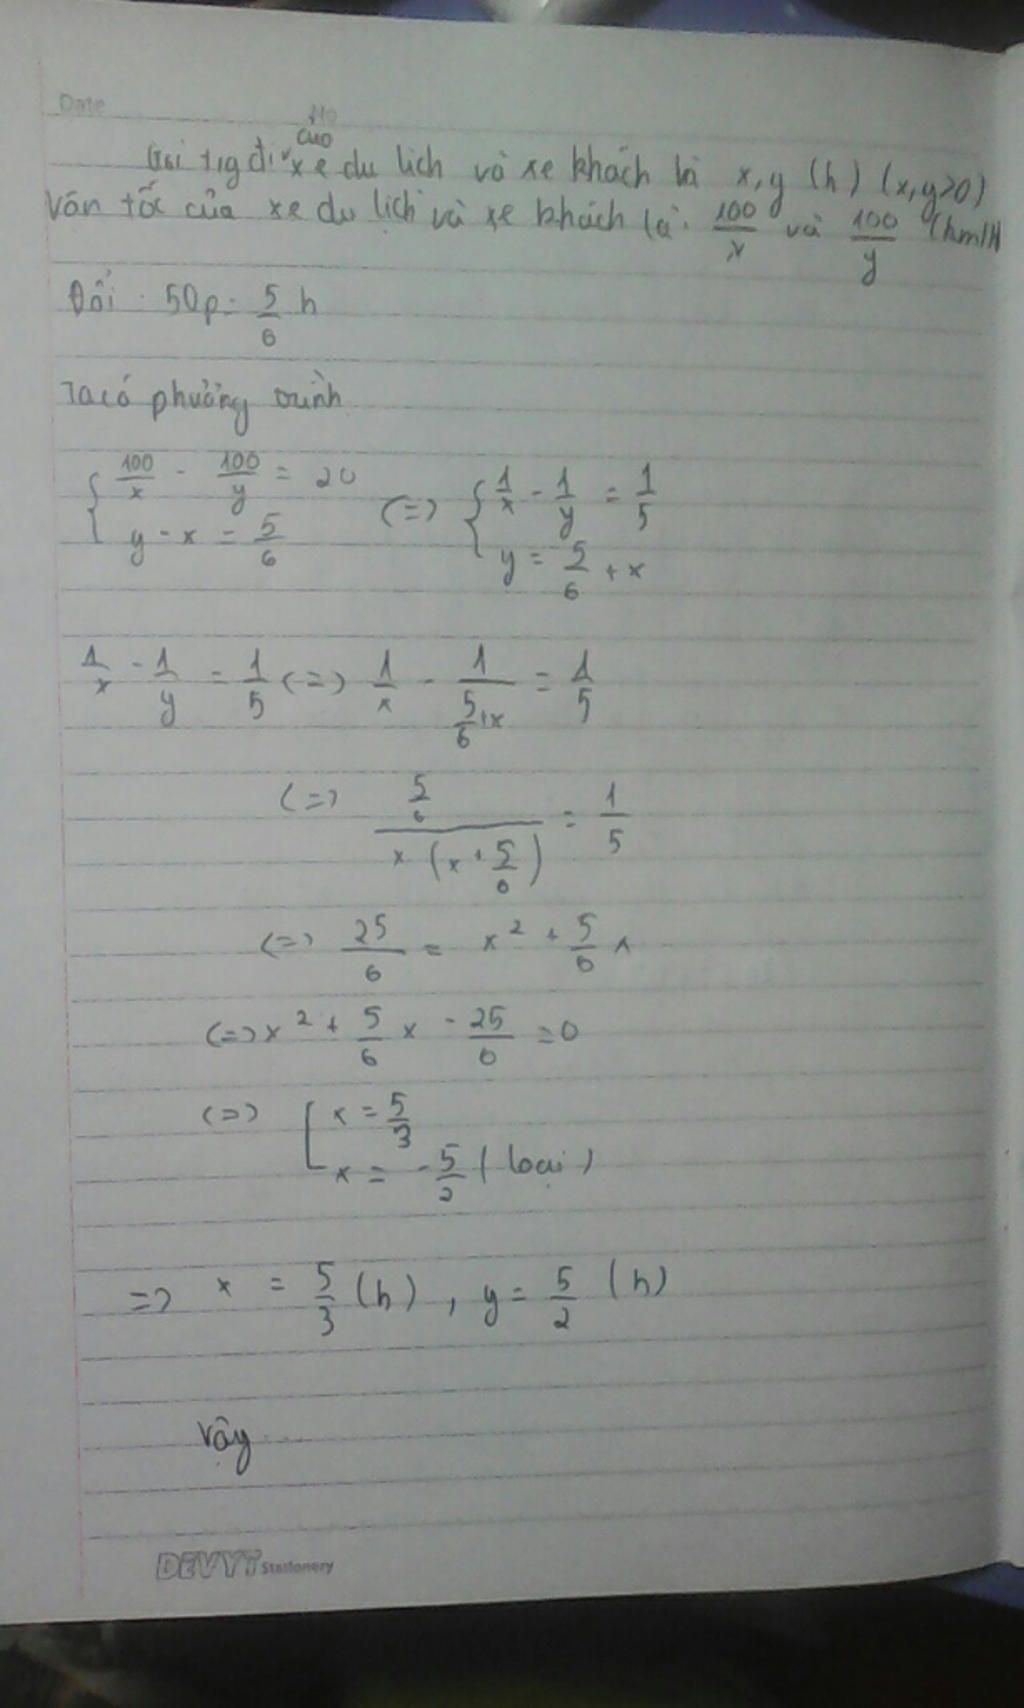 Date No
của
Gọi tig đi xe du lịch và xe khách là x, y (h) (x, y > 0)
Vân tốc của xe du lịch và xe khách là: 100/x và 100/y (km/h
Đổi : 50p = 5/6 h
Ta có phưởng trình
{ 100/x - 100/y = 20 (=) { 1/x - 1/y = 1/5
y - x = 5/6 y = 5/6 + x
1/x - 1/y = 1/5 (=) 1/x - 1/(5/6 + x) = 1/5
(=) (5/6)/(x(x + 5/6)) = 1/5
(=) 25/6 = x² + 5/6 x
(=) x² + 5/6 x - 25/6 = 0
(=) [ x = 5/3
x = - 5/2 ( loại )
=> x = 5/3 (h) , y = 5/2 (h)
Vậy ...
DEVYT Stationery